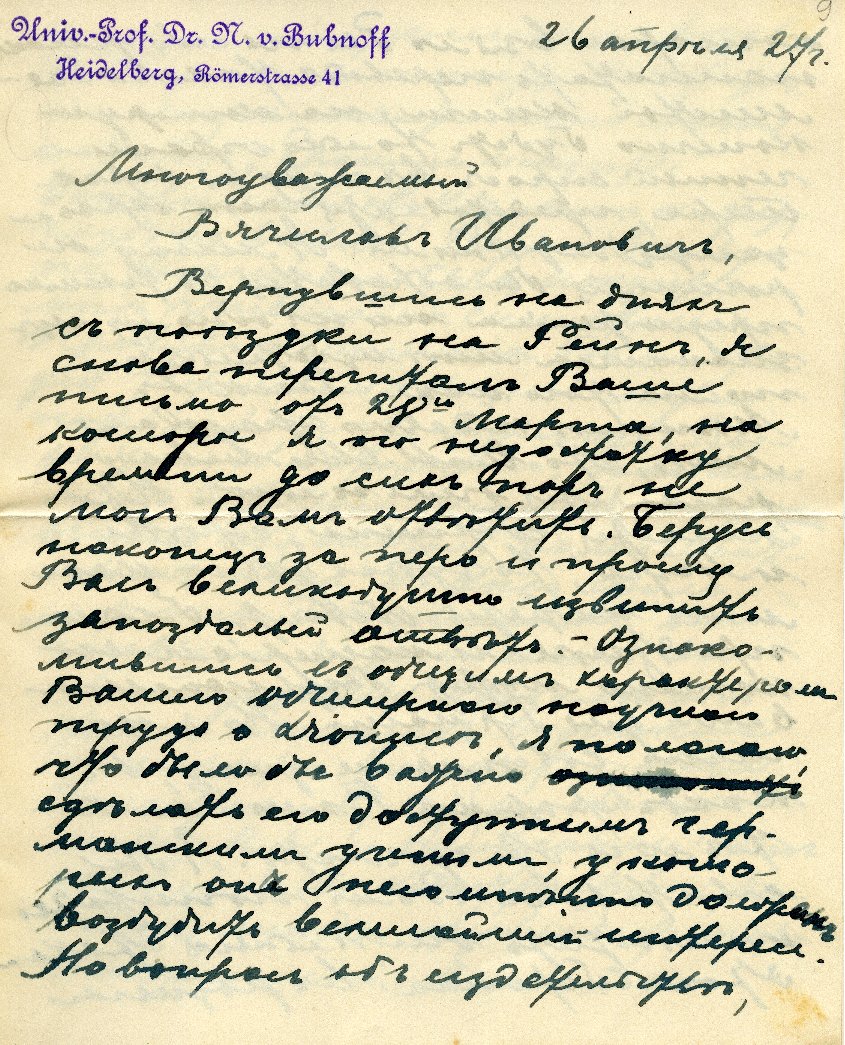 9
Univ.-Prof. Dr. N. v. Bubnoff
Heidelberg, Römerstrasse 41
26 апрѣля 27 г.
Многоуважаемый
Вячеславъ Ивановичъ,
Вернувшись на дняхъ
съ поѣздки на Рейнъ, я
снова перечиталъ Ваше
письмо отъ 28го Марта, на
которое я по недостатку
времени до сихъ поръ не
могъ Вамъ отвѣтить. Берусь
наконецъ за перо и прошу
Васъ великодушно извинить
запоздалый отвѣтъ. – Ознако-
мившись съ общимъ характеромъ
Вашего обширнаго научнаго
труда о Діонисѣ, я полагаю
что было бы важно
сдѣлать его доступнымъ гер-
манскимъ ученымъ, у кото-
рыхъ онъ несомнѣнно долженъ
возбудить величайшій интересъ.
Но вопросъ объ издательствѣ,